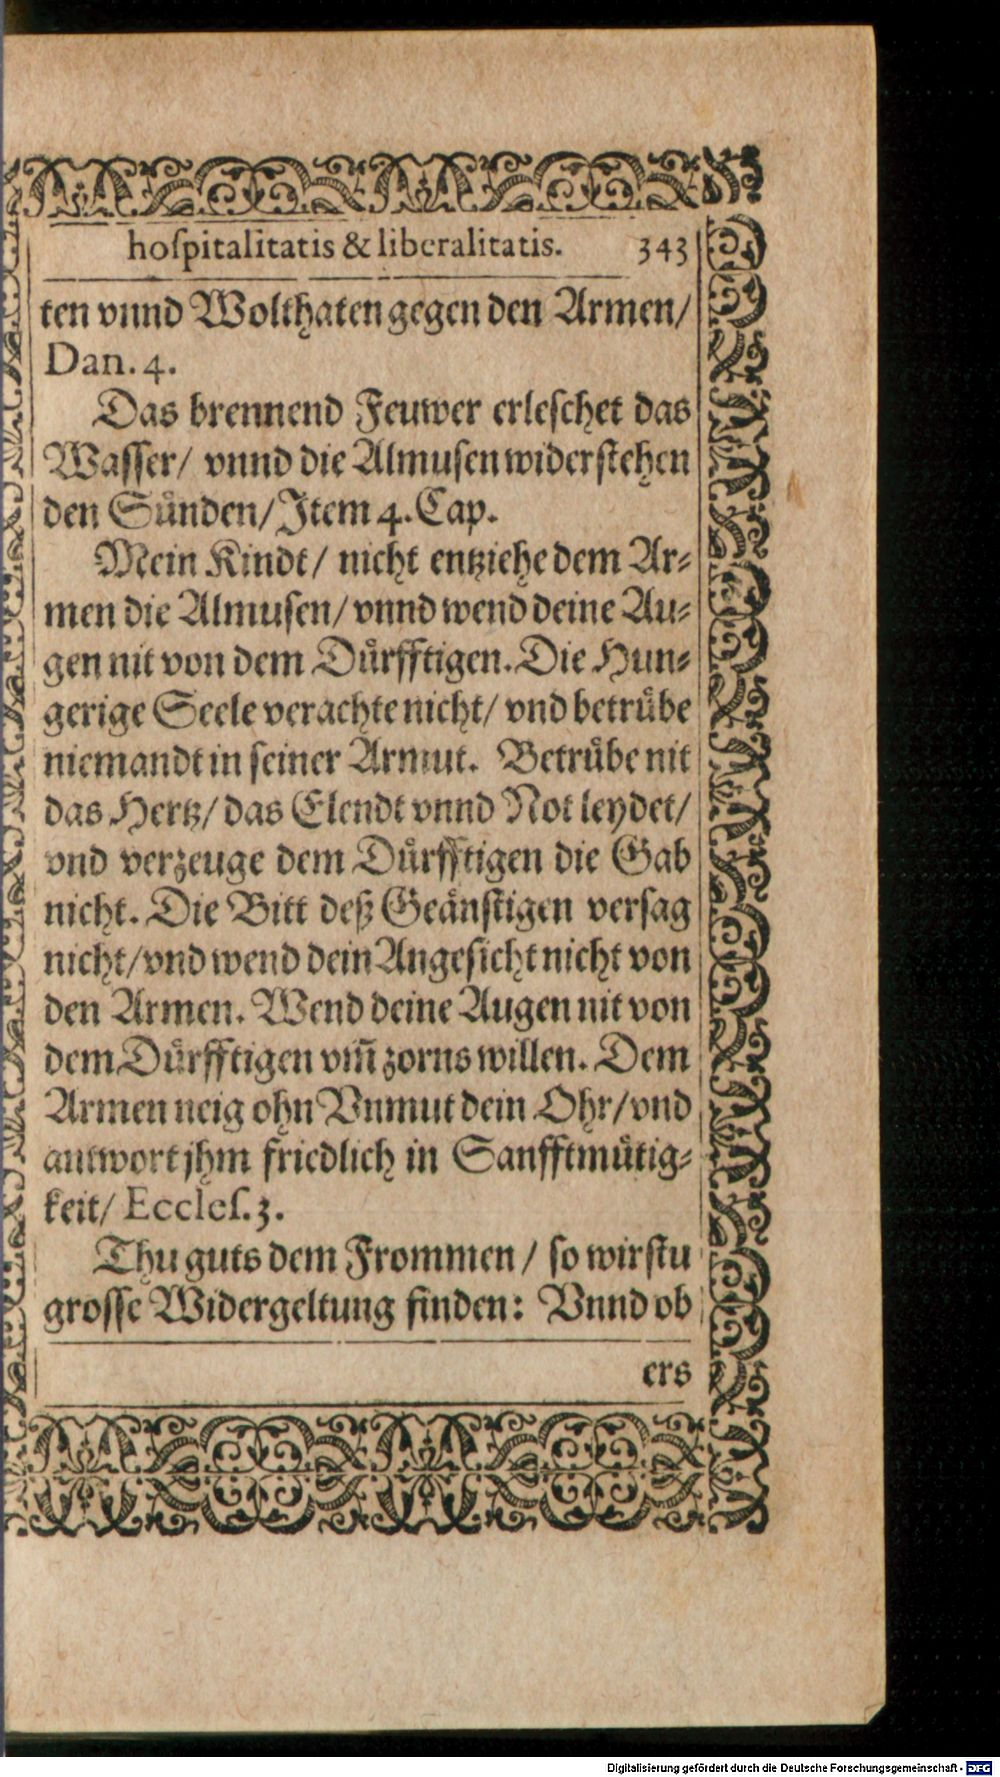 hoſpitalitatis & liberalitatis. 343
ten vnnd Wolthaten gegen den Armen/
Dan. 4.
Das brennend Feuwer erleschet das
Wasser/ vnnd die Almusen widerstehen
den Sünden/ Item 4. Cap.
Mein Kindt/ nicht entziehe dem Ar⸗
men die Almusen/ vnnd wend deine Au⸗
gen nit von dem Dürfftigen. Die Hun⸗
gerige Seele verachte nicht/ vnd betrübe
niemandt in seiner Armut. Betrübe nit
das Hertz/ das Elendt vnnd Not leydet/
vnd verzeuge dem Dürfftigen die Gab
nicht. Die Bitt deß Geänstigen versag
nicht/ vnd wend dein Angesicht nicht von
den Armen. Wend deine Augen nit von
dem Dürfftigen vm̃ zorns willen. Dem
Armen neig ohn Vnmut dein Ohr/ vnd
antwort jhm friedlich in Sanfftmütig⸗
keit/ Eccleſ. 3.
Thu guts dem Frommen / so wirstu
grosse Widergeltung finden: Vnnd ob
ers
Digitalisierung gefördert durch die Deutsche Forschungsgemeinschaft - DFG